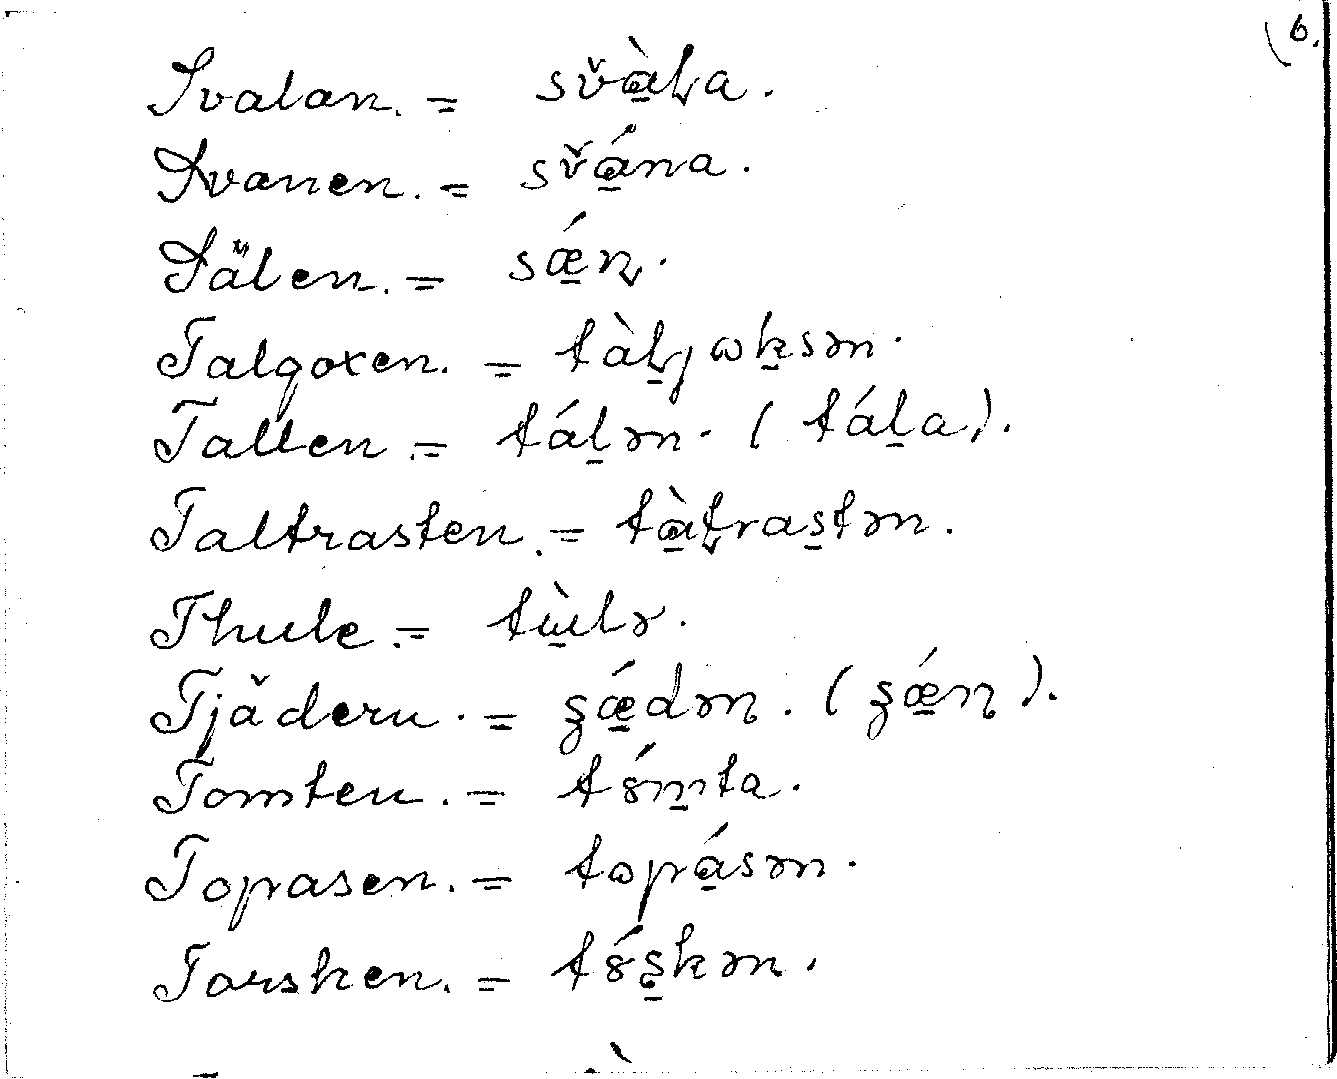 (6.
Svalan. = sv̌à̱ɭa.
Svanen. = sv̌á̱na.
Sälen. = sǽ̱ɳ.
Talgoxen. = tàḻjωḵsən.
Tallen = táḻən. (táḻa).
Taltrasten. = tà̱ɭtras̱tən.
Thule = tὼ̱lə.
Tjädern. = ʂǽ̱dən. (ʂǽ̱ɳ).
Tomten. = tȣ́m̱ta.
Topasen. = topá̱sən.
Torsken. = tȣ́ʂ̱kən.